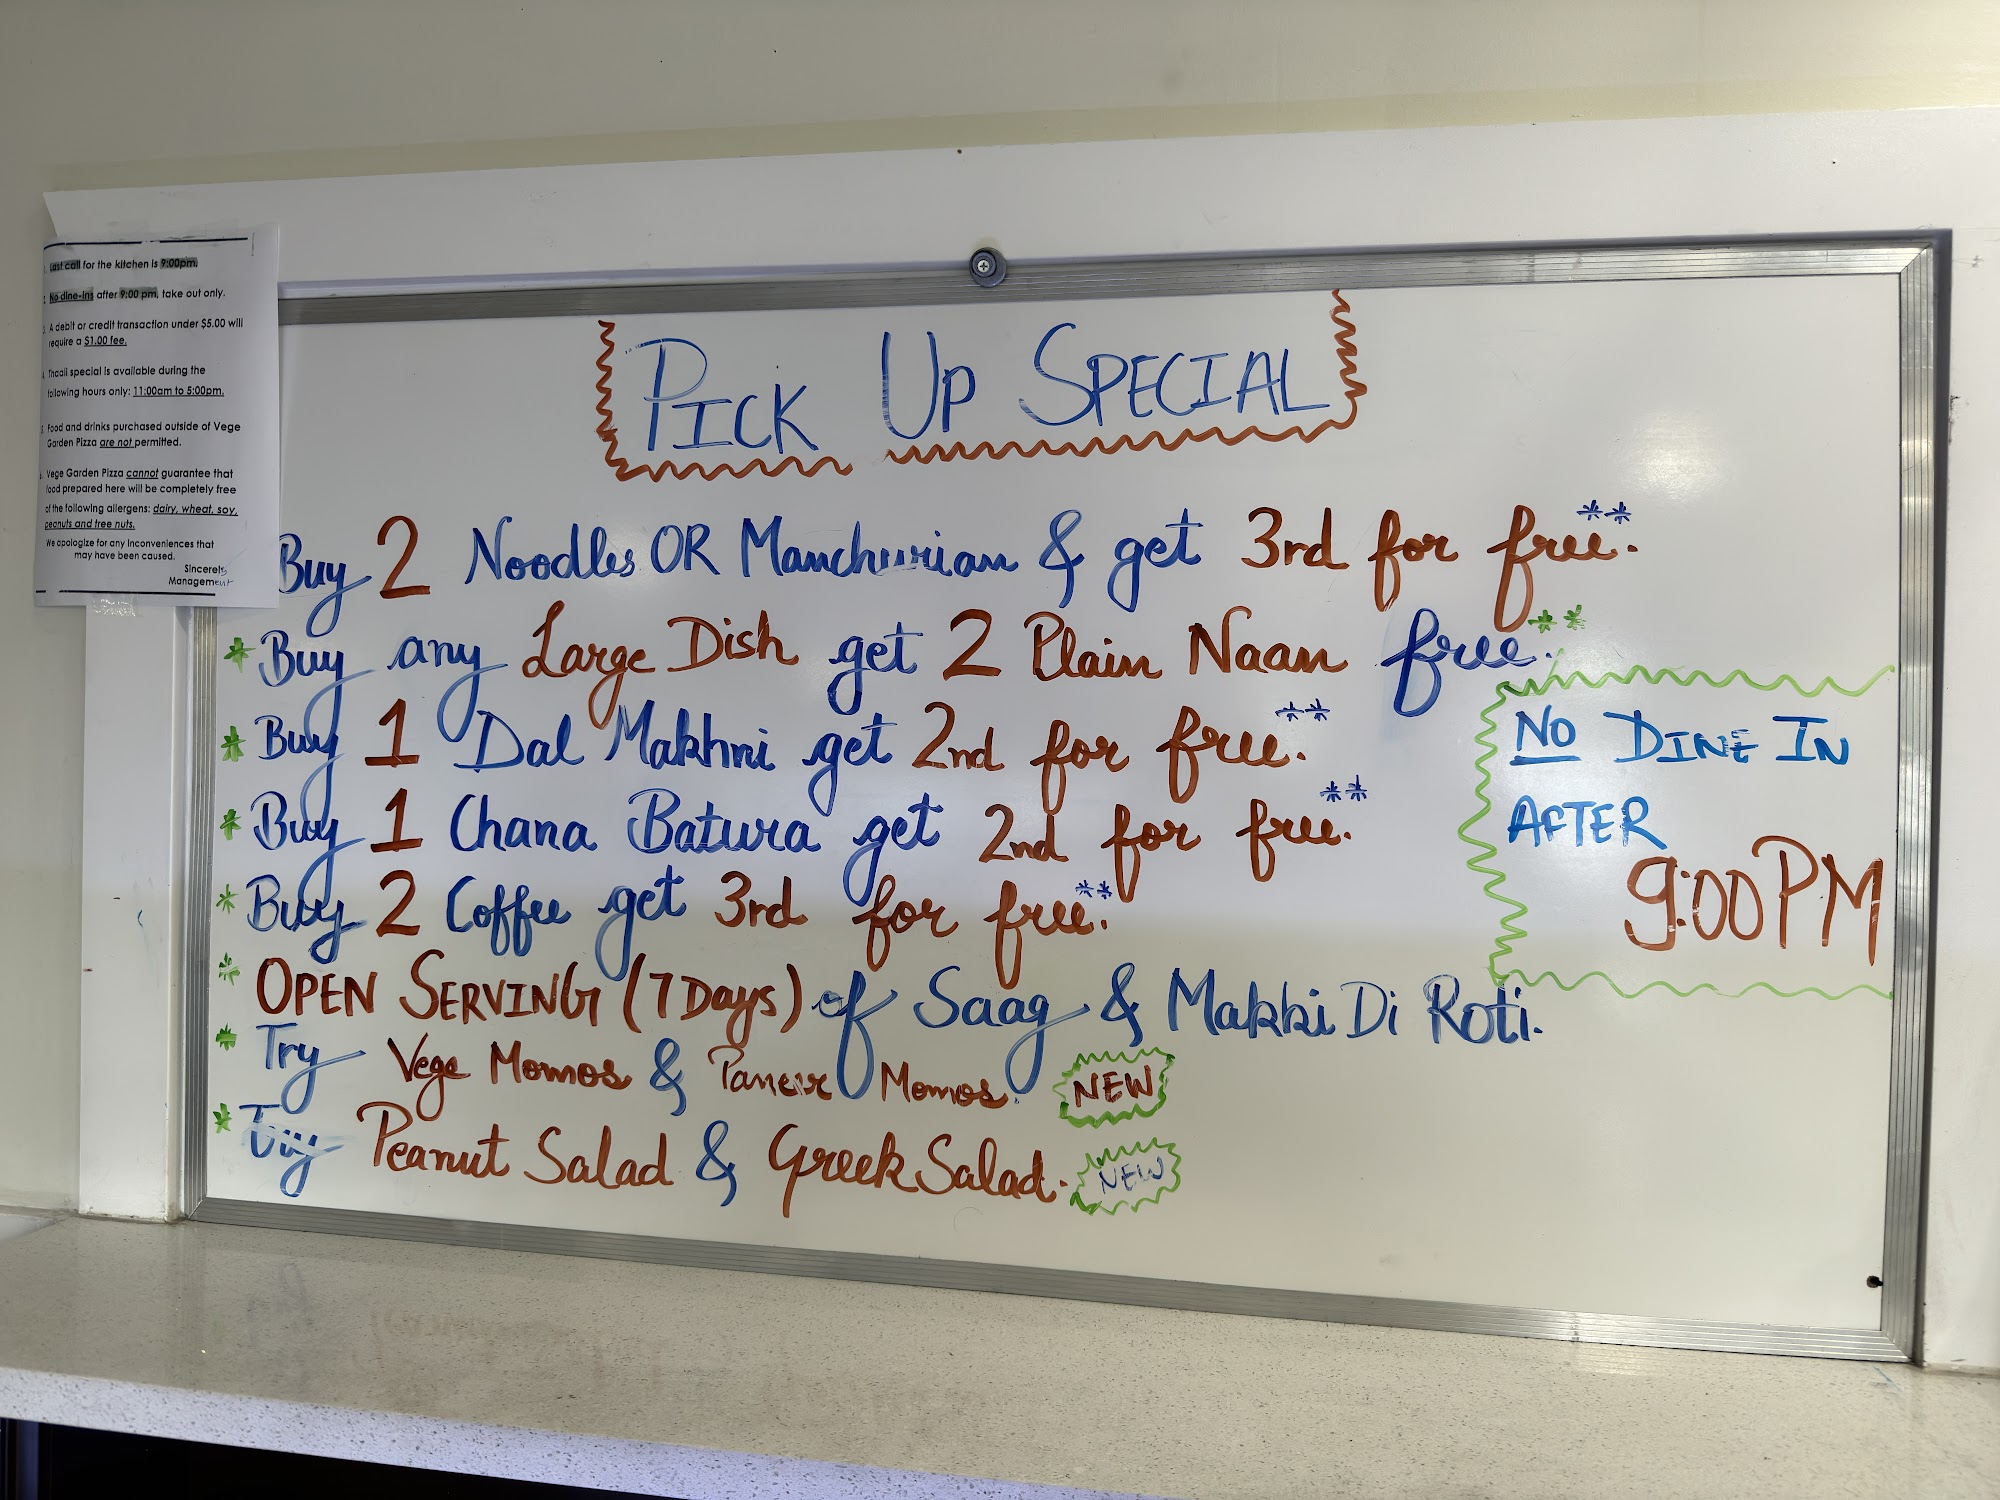 1. Last call for the kitchen is 9:00pm.
2. No dine-ins after 9:00 pm, take out only.
3. A debit or credit transaction under $5.00 will
require a $1.00 fee.
4. Thaali special is available during the
following hours only: 11:00am to 5:00pm.
5. Food and drinks purchased outside of Vege
Garden Pizza are not permitted.
6. Vege Garden Pizza cannot guarantee that
food prepared here will be completely free
of the following allergens: dairy, wheat, soy,
peanuts and tree nuts.
We apologize for any inconveniences that
may have been caused.
Sincerely
Management
PICK UP SPECIAL
Buy 2 Noodles OR Manchurian & get 3rd for free.**
* Buy any Large Dish get 2 Plain Naan free.**
* Buy 1 Dal Makhni get 2nd for free.**
* Buy 1 Chana Batura get 2nd for free.**
* Buy 2 Coffee get 3rd for free.**
* OPEN SERVING (7 Days) of Saag & Makki Di Roti.
* Try Vege Momos & Paneer Momos. NEW
* Try Peanut Salad & Greek Salad. NEW
NO DINE IN
AFTER
9:00PM